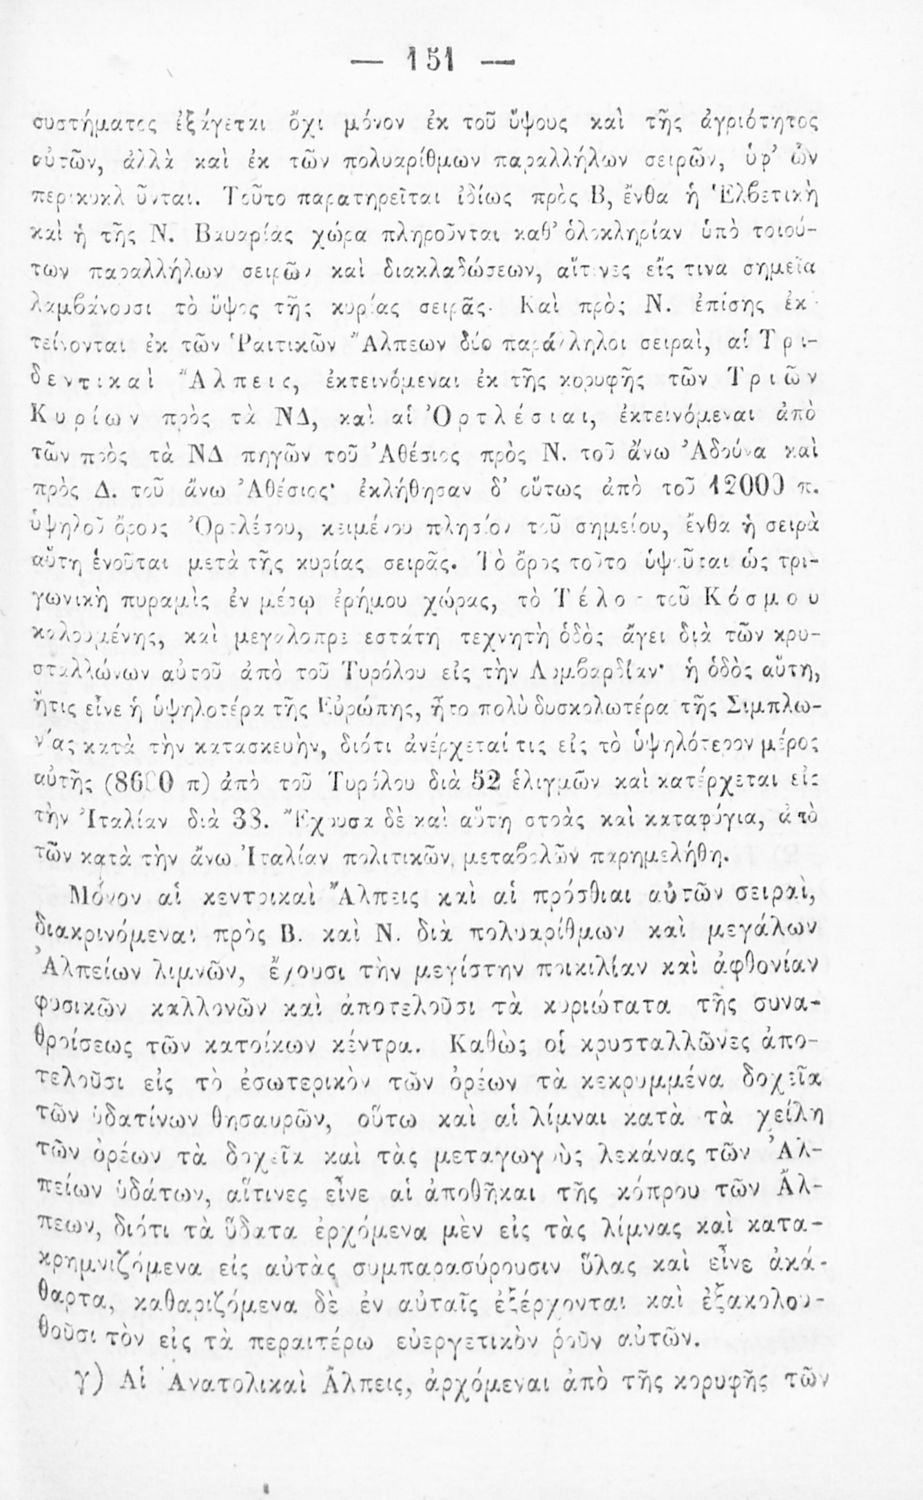 — 151 —
συστήματος ἐξάγεται ὄχι μόνον ἐκ τοῦ ὕψους καὶ τῆς ἀγριότητος
αὐτῶν, ἀλλὰ καὶ ἐκ τῶν πολυαρίθμων παραλλήλων σειρῶν, ὑφ' ὧν
περικυκλοῦνται. Τοῦτο παρατηρεῖται ἰδίως πρὸς Β, ἔνθα ἡ Ἑλβετικὴ
καὶ ἡ τῆς Ν. Βαυαρίας χώρα πληροῦνται καθ' ὁλοκληρίαν ὑπὸ τοιού-
των παραλλήλων σειρῶν καὶ διακλαδώσεων, αἵτινες εἴς τινα σημεῖα
λαμβάνουσι τὸ ὕψος τῆς κυρίας σειρᾶς. Καὶ πρὸς Ν. ἐπίσης ἐκ-
τείνονται ἐκ τῶν Ῥαιτικῶν Ἄλπεων δύο παράλληλοι σειραὶ, αἱ Τρι-
δεντικαὶ Ἄλπεις, ἐκτεινόμεναι ἐκ τῆς κορυφῆς τῶν Τριῶν
Κυρίων πρὸς τὰ ΝΔ, καὶ αἱ Ὀρτλέσιαι, ἐκτεινόμεναι ἀπὸ
τῶν πρὸς τὰ ΝΔ πηγῶν τοῦ Ἀθέσιος πρὸς Ν. τοῦ ἄνω Ἀδούα καὶ
πρὸς Δ. τοῦ ἄνω Ἀθέσιος· ἐκλήθησαν δ' οὕτως ἀπὸ τοῦ 12000 π.
ὑψηλοῦ ὄρους Ὀρτλέσου, κειμένου πλησίον τοῦ σημείου, ἔνθα ἡ σειρὰ
αὕτη ἑνοῦται μετὰ τῆς κυρίας σειρᾶς. Τὸ ὄρος τοῦτο ὑψοῦται ὡς τρι-
γωνικὴ πυραμὶς ἐν μέσῳ ἐρήμου χώρας, τὸ Τέλος τοῦ Κόσμου
καλουμένης, καὶ μεγαλοπρεπεστάτη τεχνητὴ ὁδὸς ἄγει διὰ τῶν κρυ-
σταλλώνων αὐτοῦ ἀπὸ τοῦ Τυρόλου εἰς τὴν Λομβαρδίαν· ἡ ὁδὸς αὕτη,
ἥτις εἶνε ἡ ὑψηλοτέρα τῆς Εὐρώπης, ἦτο πολὺ δυσκολωτέρα τῆς Σιμπλω-
νίας κατὰ τὴν κατασκευὴν, διότι ἀνέρχεταί τις εἰς τὸ ὑψηλότερον μέρος
αὐτῆς (8600 π) ἀπὸ τοῦ Τυρόλου διὰ 52 ἑλιγμῶν καὶ κατέρχεται εἰς
τὴν Ἰταλίαν διὰ 38. Ἔχουσα δὲ καὶ αὕτη στοὰς καὶ καταφύγια, ἀπὸ
τῶν κατὰ τὴν ἄνω Ἰταλίαν πολιτικῶν μεταβολῶν παρημελήθη.
Μόνον αἱ κεντρικαὶ Ἄλπεις καὶ αἱ πρόσθιαι αὐτῶν σειραὶ,
διακρινόμεναι πρὸς Β. καὶ Ν. διὰ πολυαρίθμων καὶ μεγάλων
Ἀλπείων λιμνῶν, ἔχουσι τὴν μεγίστην ποικιλίαν καὶ ἀφθονίαν
φυσικῶν καλλονῶν καὶ ἀποτελοῦσι τὰ κυριώτατα τῆς συνα-
θροίσεως τῶν κατοίκων κέντρα. Καθὼς οἱ κρυσταλλῶνες ἀπο-
τελοῦσι εἰς τὸ ἐσωτερικὸν τῶν ὀρέων τὰ κεκρυμμένα δοχεῖα
τῶν ὑδατίνων θησαυρῶν, οὕτω καὶ αἱ λίμναι κατὰ τὰ χείλη
τῶν ὀρέων τὰ δοχεῖα καὶ τὰς μεταγωγοὺς λεκάνας τῶν Ἀλ-
πείων ὑδάτων, αἵτινες εἶνε αἱ ἀποθῆκαι τῆς κόπρου τῶν Ἄλ-
πεων, διότι τὰ ὕδατα ἐρχόμενα μὲν εἰς τὰς λίμνας καὶ κατα-
κρημνιζόμενα εἰς αὐτὰς συμπαρασύρουσιν ὕλας καὶ εἶνε ἀκά-
θαρτα, καθαριζόμενα δὲ ἐν αὐταῖς ἐξέρχονται καὶ ἐξακολου-
θοῦσι τὸν εἰς τὰ περαιτέρω εὐεργετικὸν ῥοῦν αὐτῶν.
γ) Αἱ Ἀνατολικαὶ Ἄλπεις, ἀρχόμεναι ἀπὸ τῆς κορυφῆς τῶν